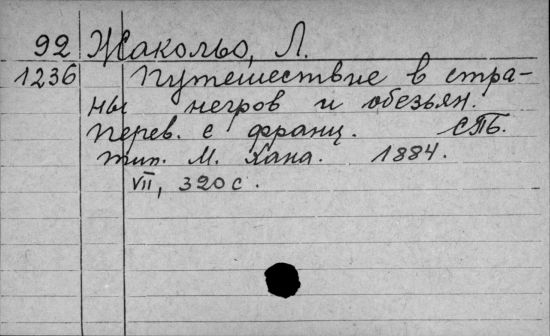 92 Жакольо, Л.
1236 Путешествие в стра-
ны негров и обезьян.
Перев. с франц. СПб.
тип. М. Хана. 1884.
VII, 320 с.